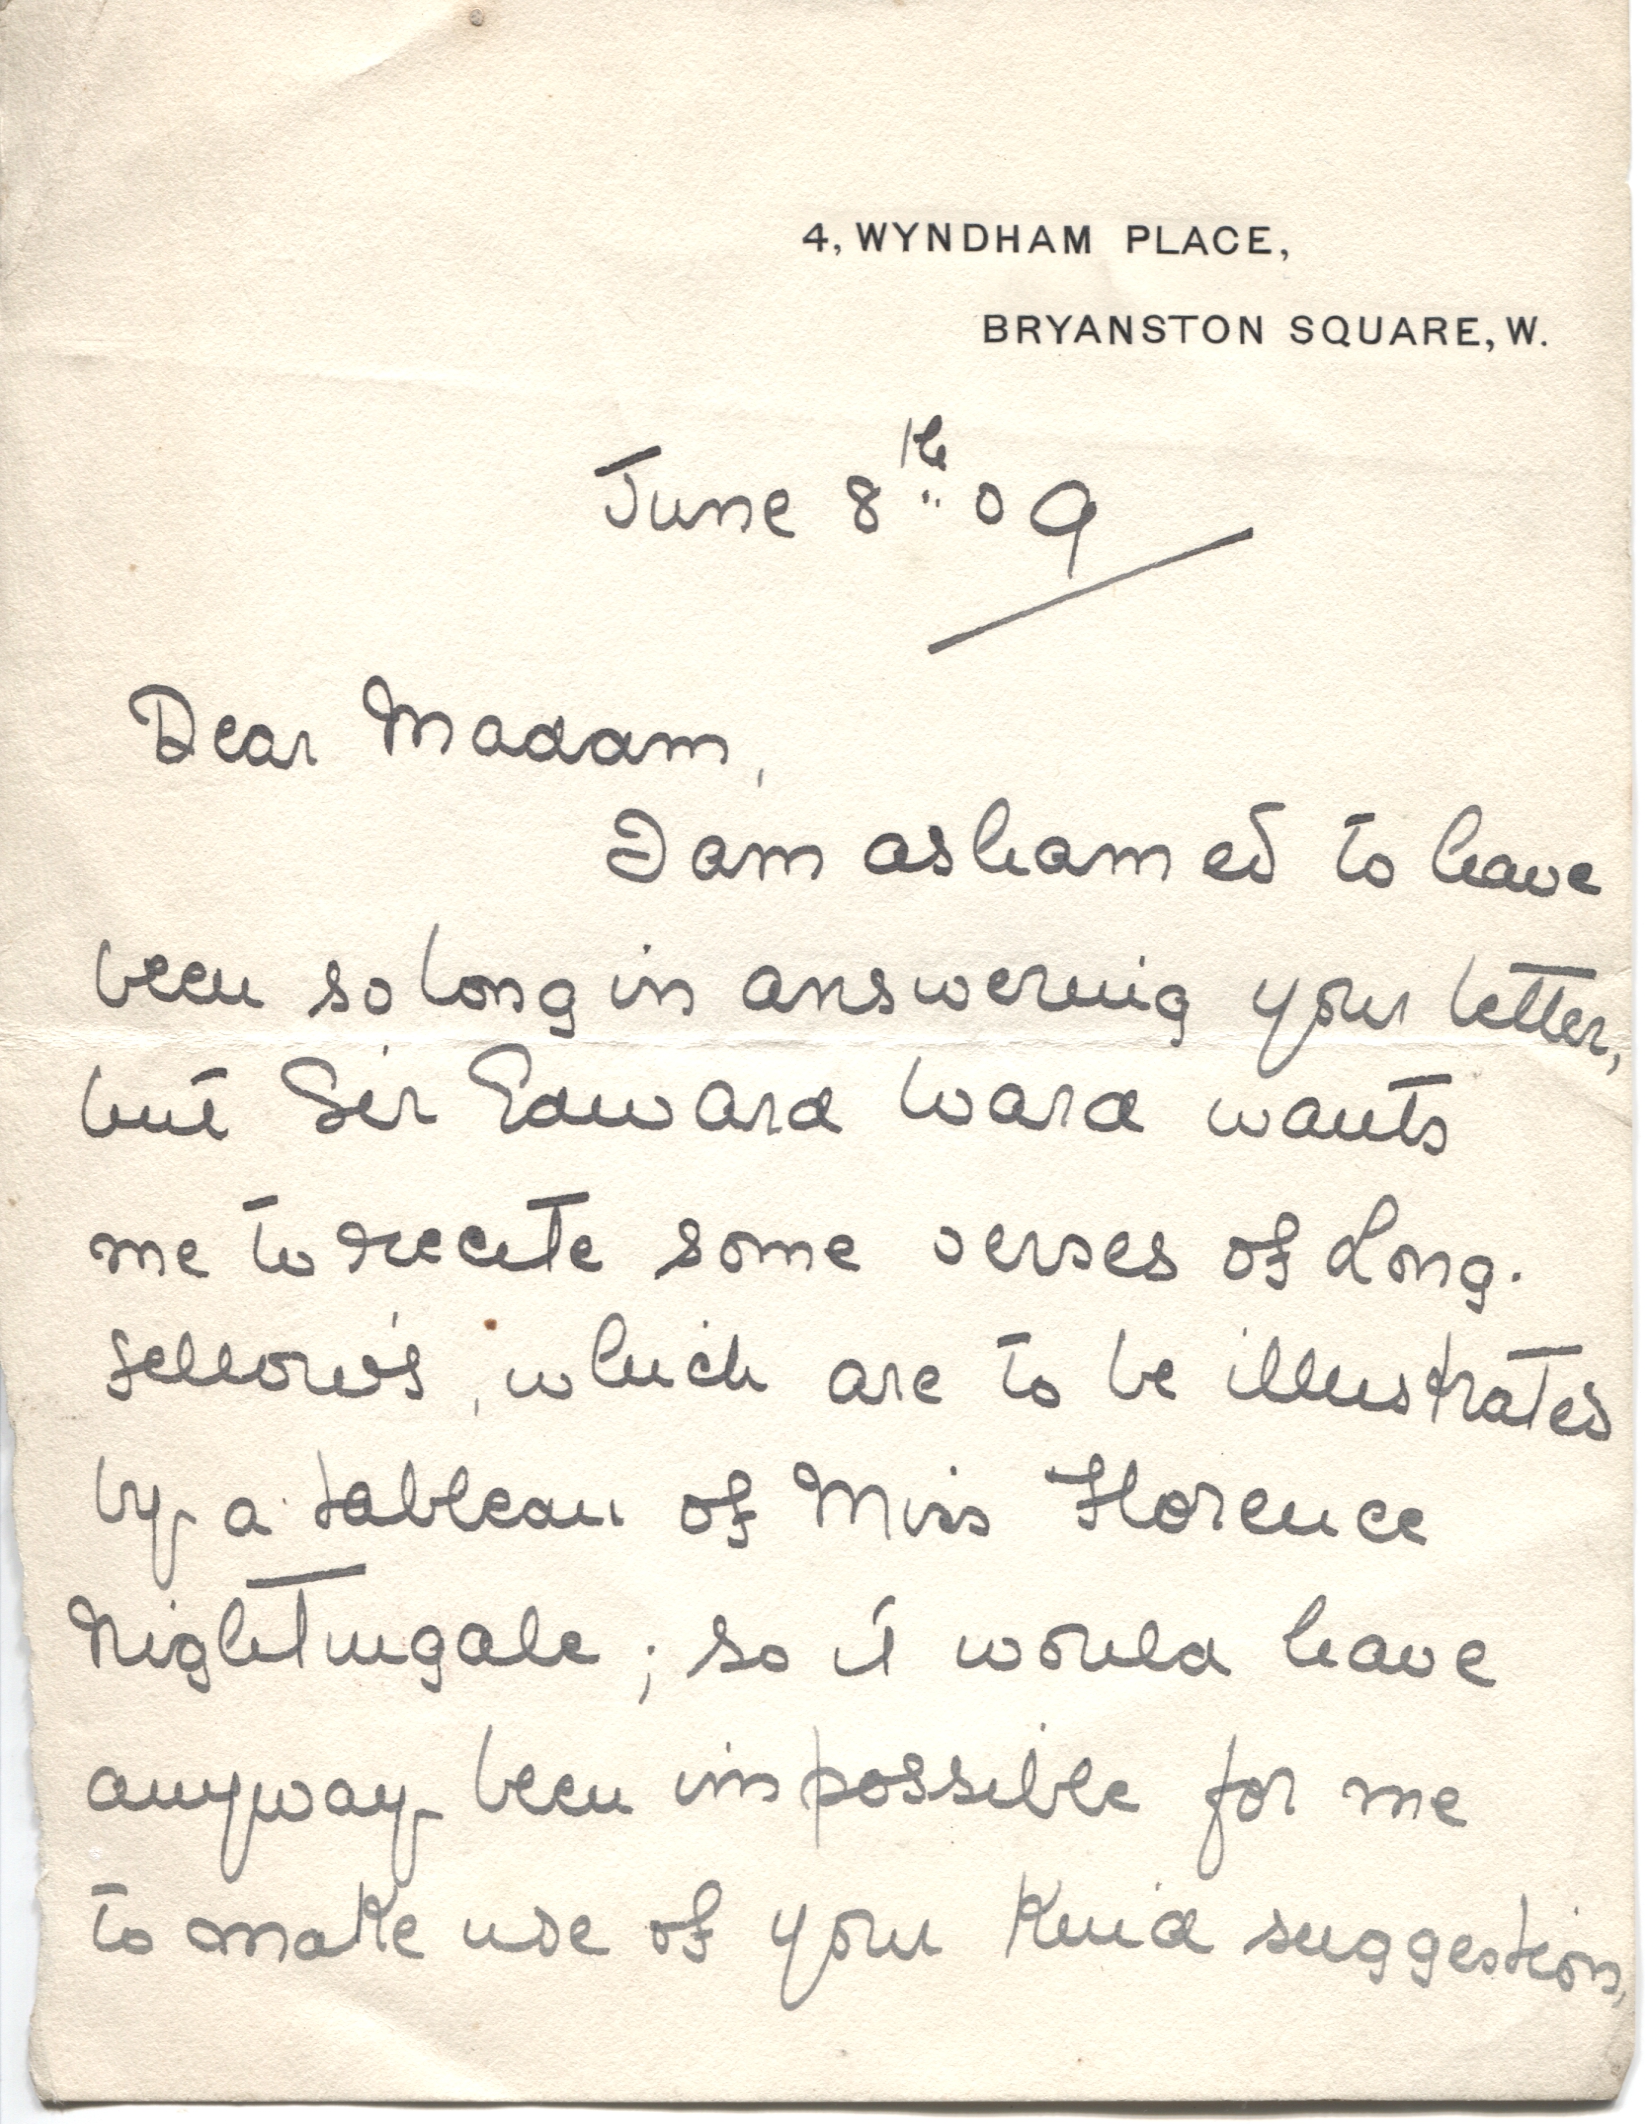 4, WYNDHAM PLACE,
BRYANSTON SQUARE, W.
June 8th 09
Dear Madam,
I am ashamed to have
been so long in answering your letter,
but Sir Edward Ward wants
me to recite some verses of Long-
fellow's, which are to be illustrated
by a tableau of Miss Florence
Nightingale; so it would have
anyway been impossible for me
to make use of your kind suggestion,